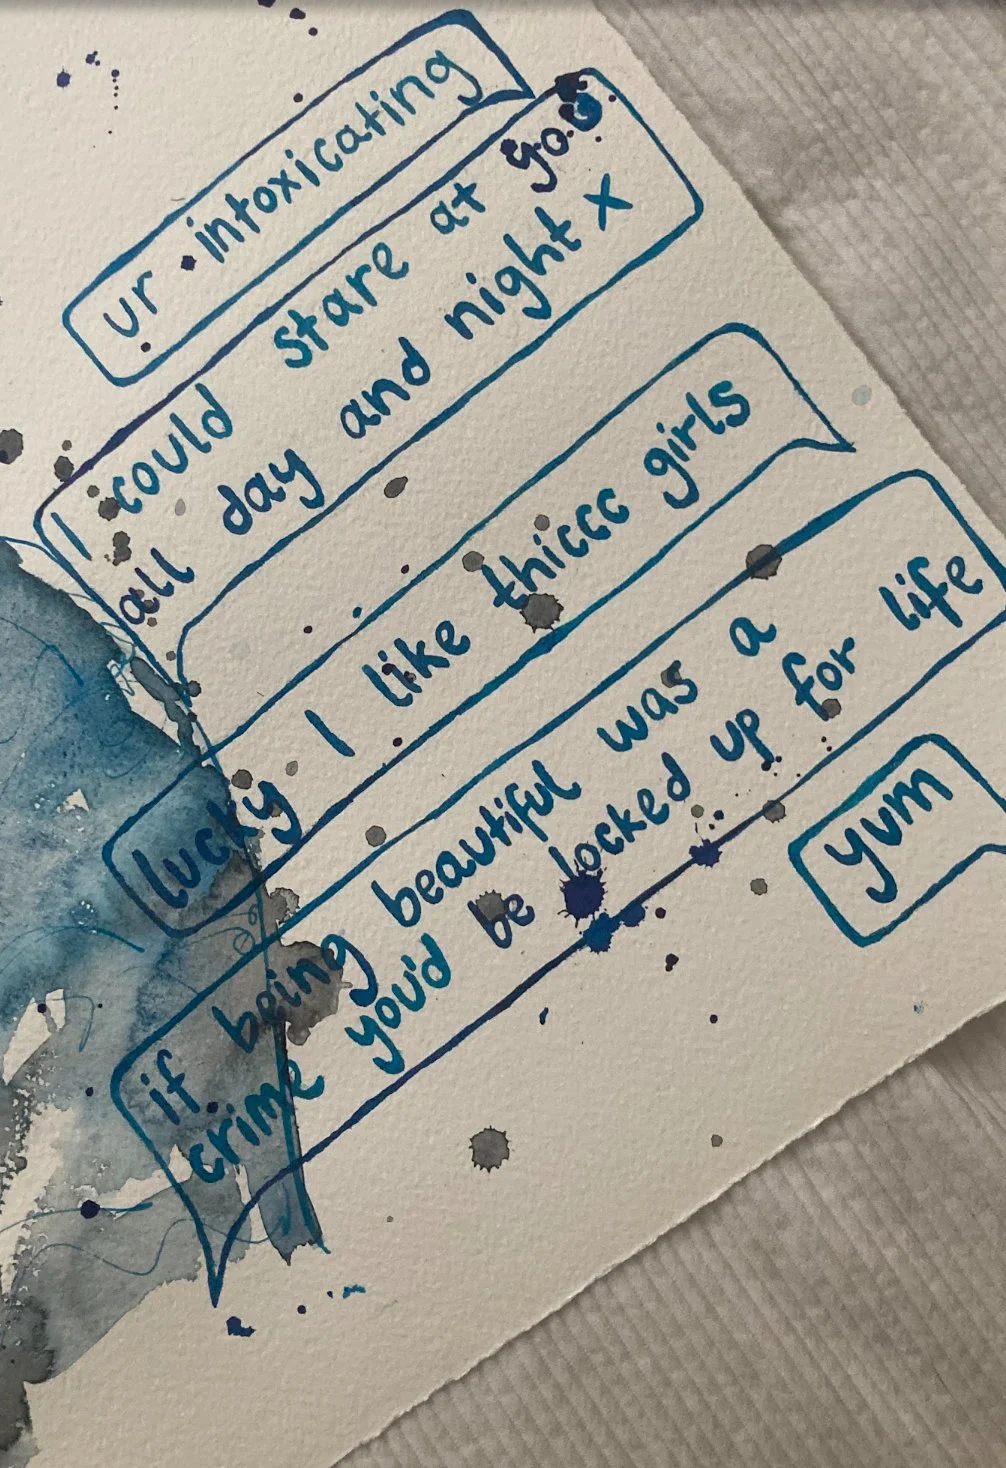 ur intoxicating
I could stare at you
all day and night x
lucky I like thiccc girls
if being beautiful was a
crime you'd be locked up for life
yum